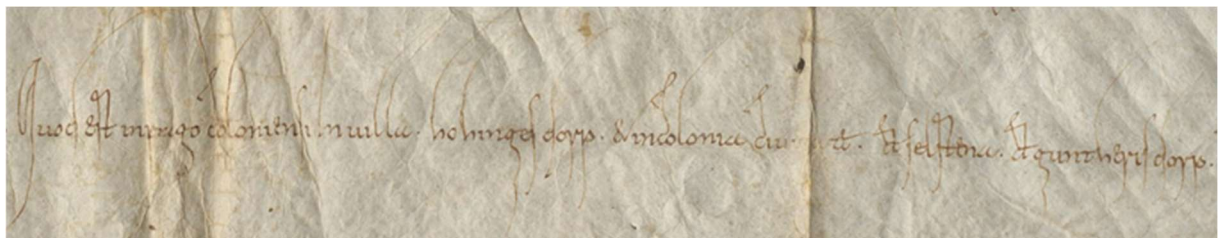 Quod est in pago coloniensi in uilla. hohingesdorp. & in colonia ciuitate. Et selstena. Et guntherisdorp.